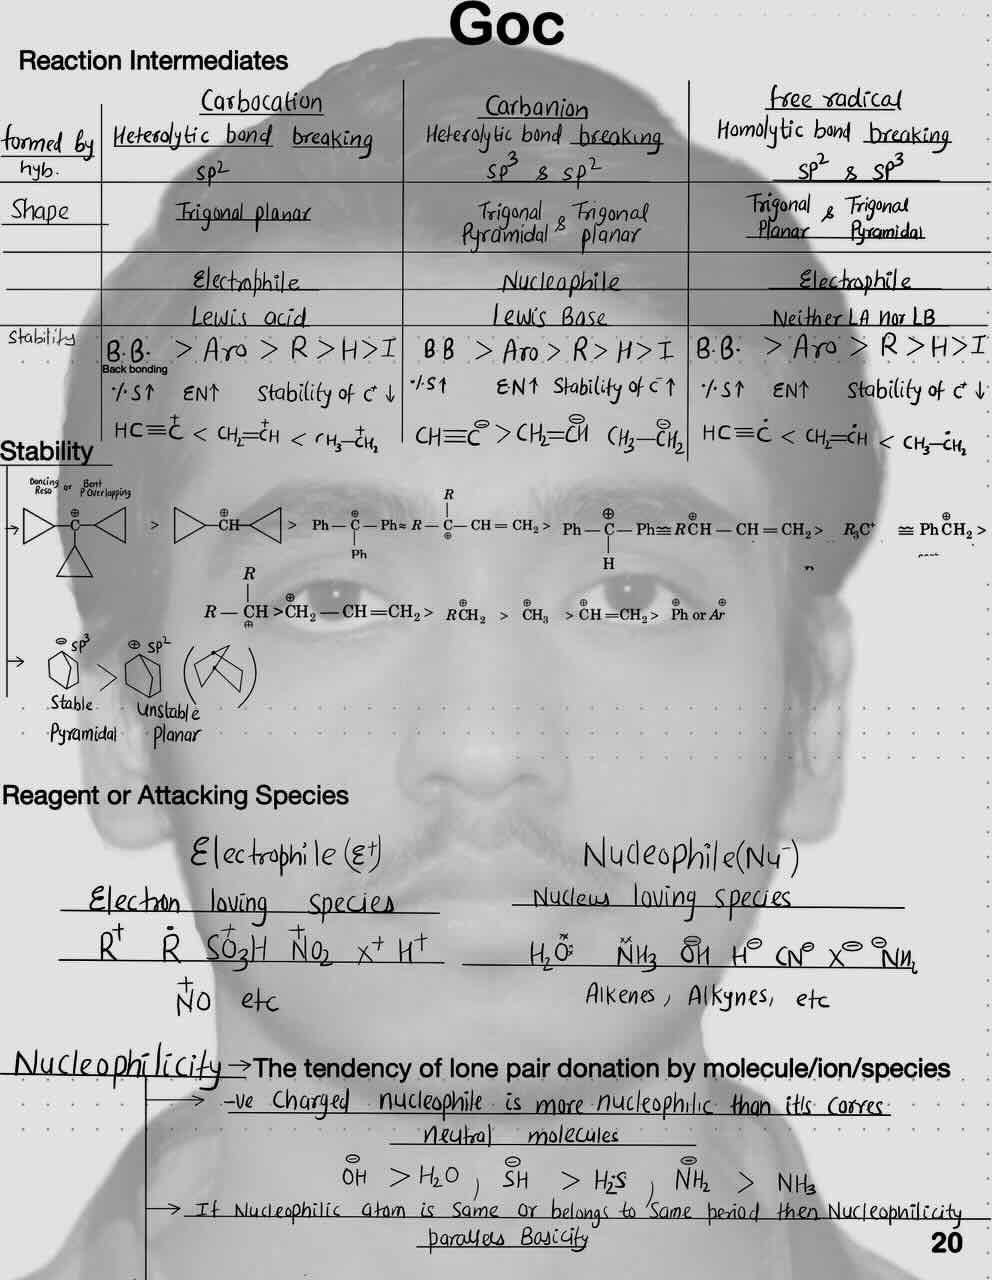 Goc
Reaction Intermediates
Carbocation Carbanion free radical
formed by Heterolytic bond breaking Heterolytic bond breaking Homolytic bond breaking
hyb. sp² sp³ & sp² sp² & sp³
Shape Trigonal planar Trigonal Pyramidal & Trigonal planar Trigonal Planar & Trigonal Pyramidal
Electrophile Nucleophile Electrophile
Lewis acid Lewis Base Neither LA nor LB
Stability B.B. > Aro > R > H > I B B > Aro > R > H > I B.B. > Aro > R > H > I
Back bonding
%S↑ EN↑ Stability of C⁺ ↓ %S↑ EN↑ Stability of C⁻ ↑ %S↑ EN↑ Stability of C⁺ ↓
HC≡C⁺ < CH₂=CH⁺ < CH₃–CH₂⁺ CH≡C⊖ > CH₂=CH⊖ CH₃–CH₂⊖ HC≡Ċ < CH₂=ĊH < CH₃–ĊH₂
Stability
Dancing Reso or Bent P Overlapping
C⊕ > CH⊕ > Ph–C⊕(Ph)–Ph ≈ R–C⊕(R)–CH=CH₂ > Ph–C⊕(H)–Ph ≅ RCH⊕–CH=CH₂ > R₃C⁺ ≅ PhCH₂⊕ >
R–CH⊕(R) > CH₂⊕–CH=CH₂ > RCH₂⊕ > CH₃⊕ > CH⊕=CH₂ > Ph⊕ or Ar⊕
⊖ sp³ > ⊕ sp²
Stable Unstable
Pyramidal planar
Reagent or Attacking Species
Electrophile (E⁺) Nucleophile (Nu⁻)
Electron loving species Nucleus loving species
R⁺ Ṙ SO₃H⁺ NO₂⁺ X⁺ H⁺ H₂O: NH₃ OH⊖ H⊖ CN⊖ X⊖ NH₂⊖
NO⁺ etc Alkenes, Alkynes, etc
Nucleophilicity → The tendency of lone pair donation by molecule/ion/species
→ -ve Charged nucleophile is more nucleophilic than it's corres
neutral molecules
OH⊖ > H₂O , SH⊖ > H₂S , NH₂⊖ > NH₃
→ If Nucleophilic atom is Same or belongs to Same period then Nucleophilicity
parallels Basicity
20